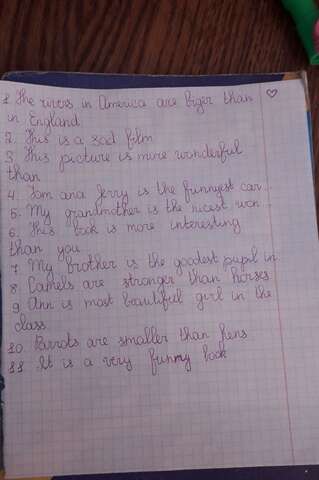 1. The rivers in America are biger than
in England.
2. This is a sad film
3. This picture is more wonderful
than
4. Tom and Jerry is the funnyest car
5. My grandmother is the nicest won
6. This book is more interesting
than you
7. My brother is the goodest pupil in
8. Camels are stronger than horses
9. Ann is most beautiful girl in the
class
10. Parrots are smaller than hens
11. It is a very funny book